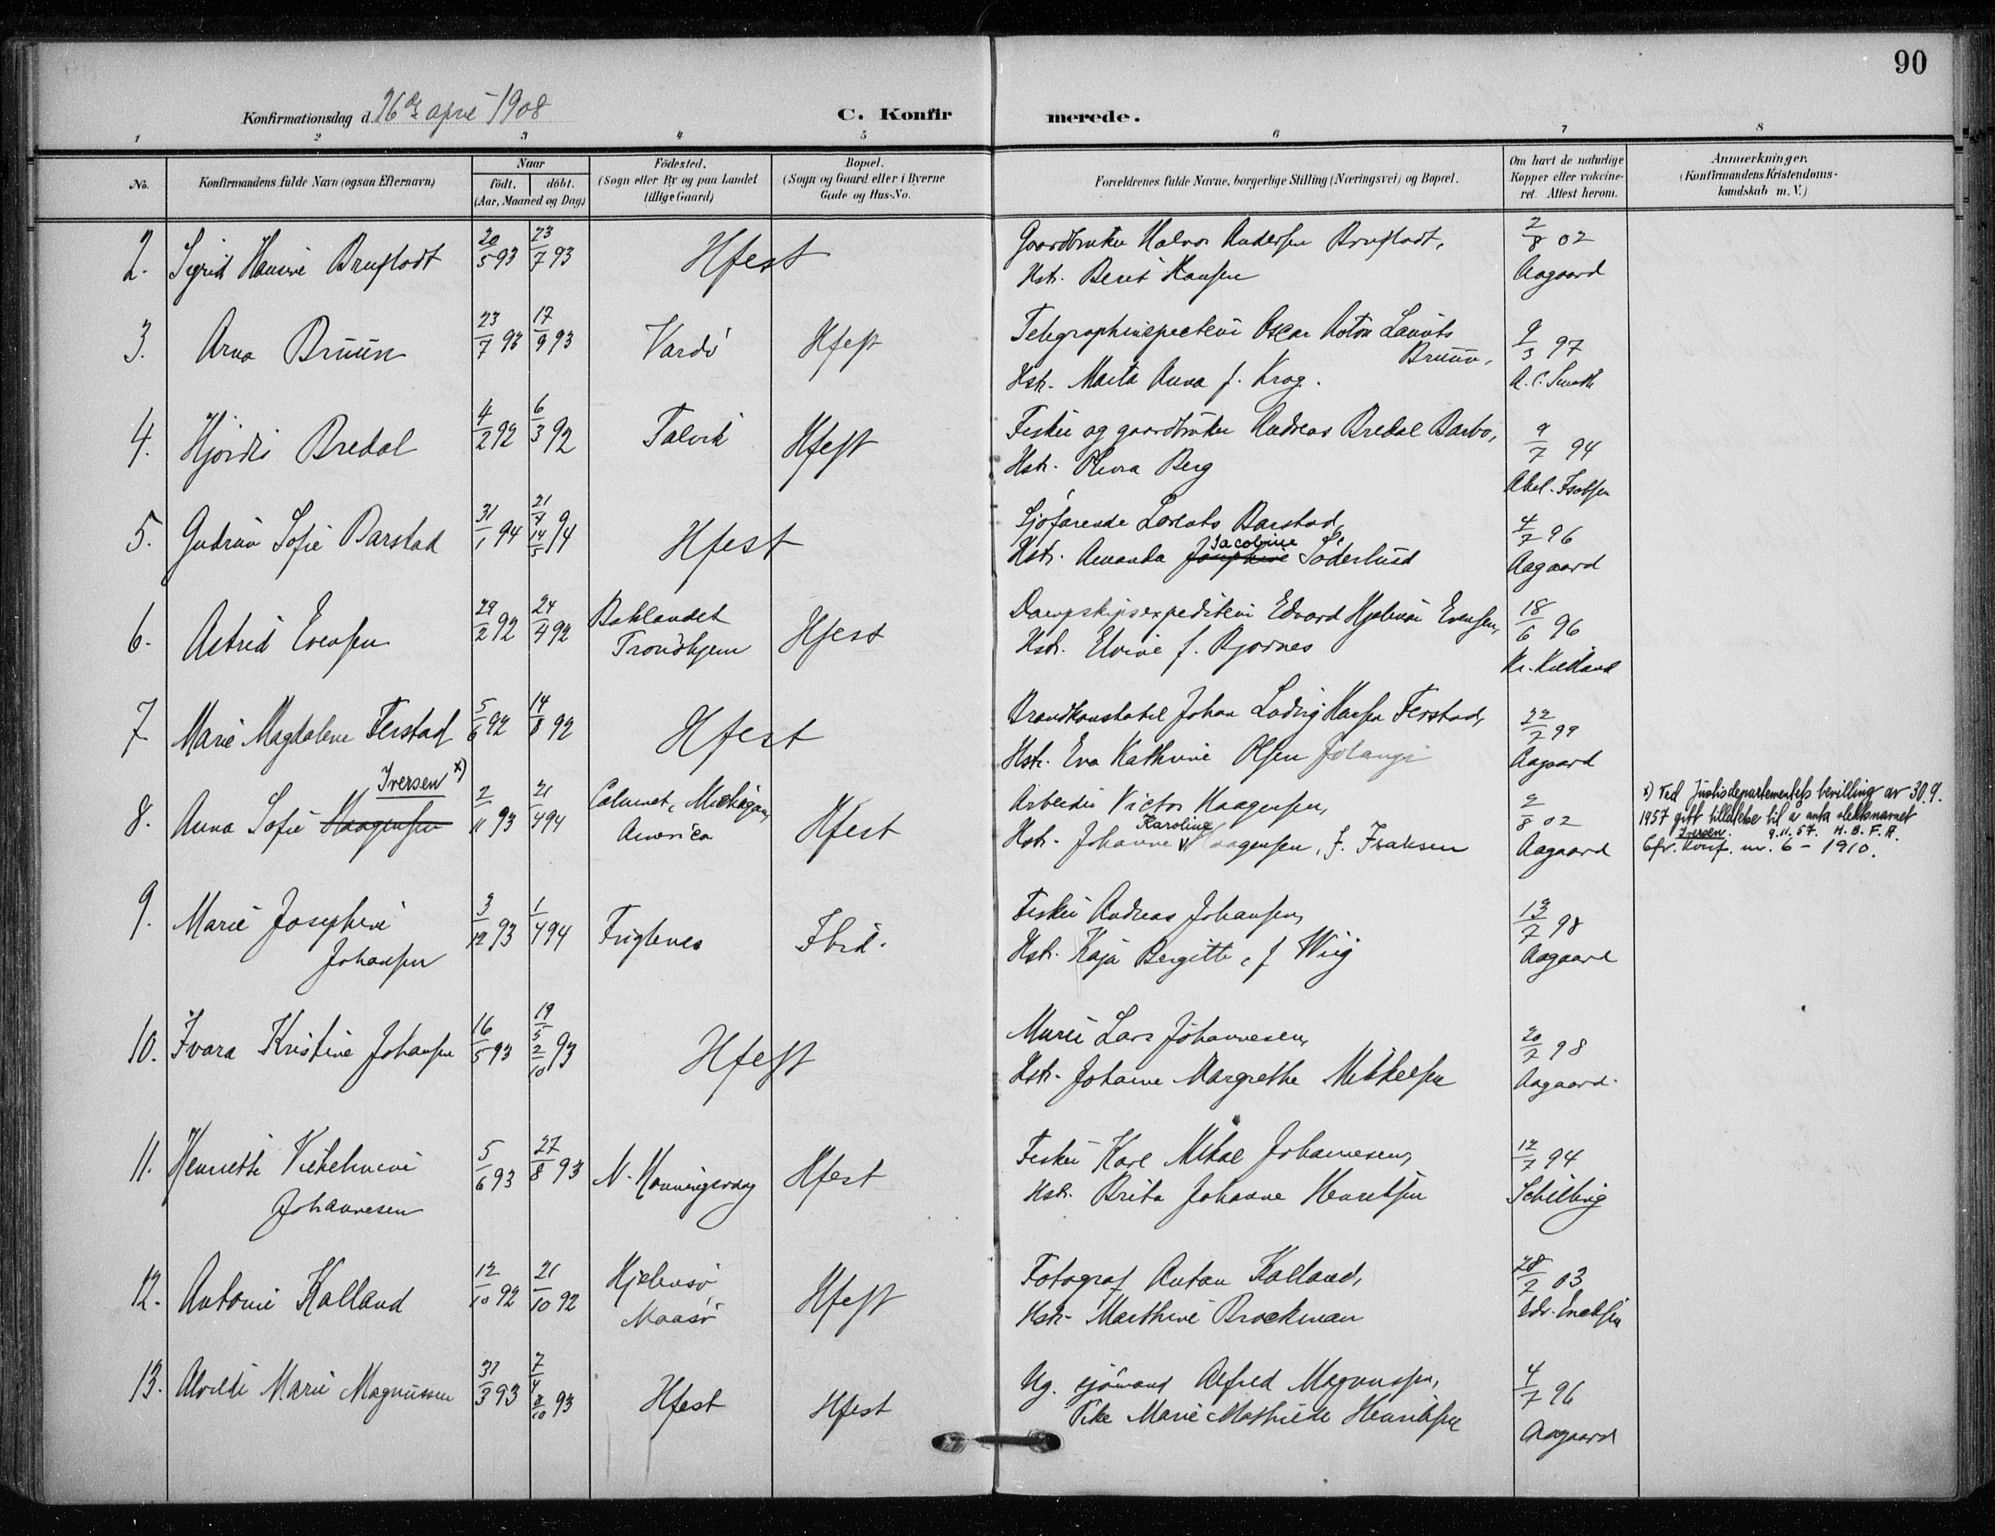 90
Konfirmationsdag d. 26de april 1908
C. Konfirmerede.
1 2 3 4 5 6 7 8
No.
Konfirmandens fulde Navn (ogsaa Efternavn)
Naar
født. døbt.
(Aar, Maaned og Dag)
Fødested.
(Sogn eller By og paa Landet
tillige Gaard)
Bopæl.
(Sogn og Gaard eller i Byerne
Gade og Hus-No.
Forældrenes fulde Navne, borgerlige Stilling (Næringsvei) og Bopæl.
Om havt de naturlige
Kopper eller vakcine-
ret. Attest herom.
Anmærkninger.
(Konfirmandens Kristendoms-
kundskab m. V.)
2. Sigrid Hansine Brustadt 20/5 93 23/7 93 Hfest
Gaardbruker Halvor Andersen Brustadt,
Hstr. Berit Hansen
2/8 02
Aagaard
3. Arna Bruun 23/7 93 17/9 93 Vardö Hfest
Telegrafinspecteur Oscar Anton Lauritz
Bruun,
Hstr. Marta Anna f. Krog.
9/3 97
4. Hjördis Bredal 4/2 92 6/3 92 Talvik Hfest
Fisker og gaardbruker Andreas Bredal Barbo,
Hstr. Olivia Berg
9/7 94
5. Gudrun Sofie Barstad 31/1 94 21/4 14/5 94 Hfest
Sjöfarende Lorents Barstad,
Hstr. Amanda Josephine Jacobine Söderlund
4/7 96
Aagaard
6. Astrid Evensen 29/2 92 24/4 92 Baklandet
Trondhjem Hfest
Dampskipsexpeditør Edvard Hjelmer Evensen,
Hstr. Elvine f. Bjørnes
18/6 96
7 Marie Magdalene Ferstad 5/6 92 14/8 92 Hfest
Brandkonstabel Johan Ludvig Hansen Ferstad,
Hstr. Eva Kathrine Olsen
22/7 99
Aagaard
8. Anna Sofie Haagensen Iversen x) 2/11 93 21/4 94 Calumet, Michigan,
America Hfest
Arbeider Victor Haagensen,
Hstr. Johanne Karoline Haagensen, f. Isaksen
2/8 02
Aagaard
x) Ved Justisdepartementets bevilling av 30.9.
1957 gitt tillatelse til å anta slektsnavnet
Iversen. 9.11.57. H.B.F.A.
Cfr. Konf. nr. 6 - 1910.
9. Marie Josephine
Johansen 3/12 93 1/4 94 Fuglenes Ibid.
Fisker Andreas Johansen,
Hstr. Kaja Bergitte, f Wiig
13/7 98
Aagaard
10. Ivara Kristine Johansen 16/5 93 19/5 2/10 93 Hfest
Murer Lars Johannesen,
Hstr. Johanne Margrethe Mikkelsen
20/7 98
Aagaard.
11. Henriette Vilhelmine
Johannesen 5/6 93 27/8 93 N. Honningsvaag Hfest
Fisker Karl Mikal Johannesen,
Hstr. Brita Johanne Henriksen
12/7 94
Schilling
12. Antonie Kalland 12/10 92 21/10 92 Hjelmsö,
Maasö Hfest
Fotograf Anton Kalland,
Hstr. Marthine Brockman
28/2 03
13. Alvilde Marie Magnussen 31/3 93 7/4 2/10 93 Hfest Hfest
Ug. sjömand Alfred Magnussen,
Pike Marie Mathilde Henriksen
4/7 96
Aagaard